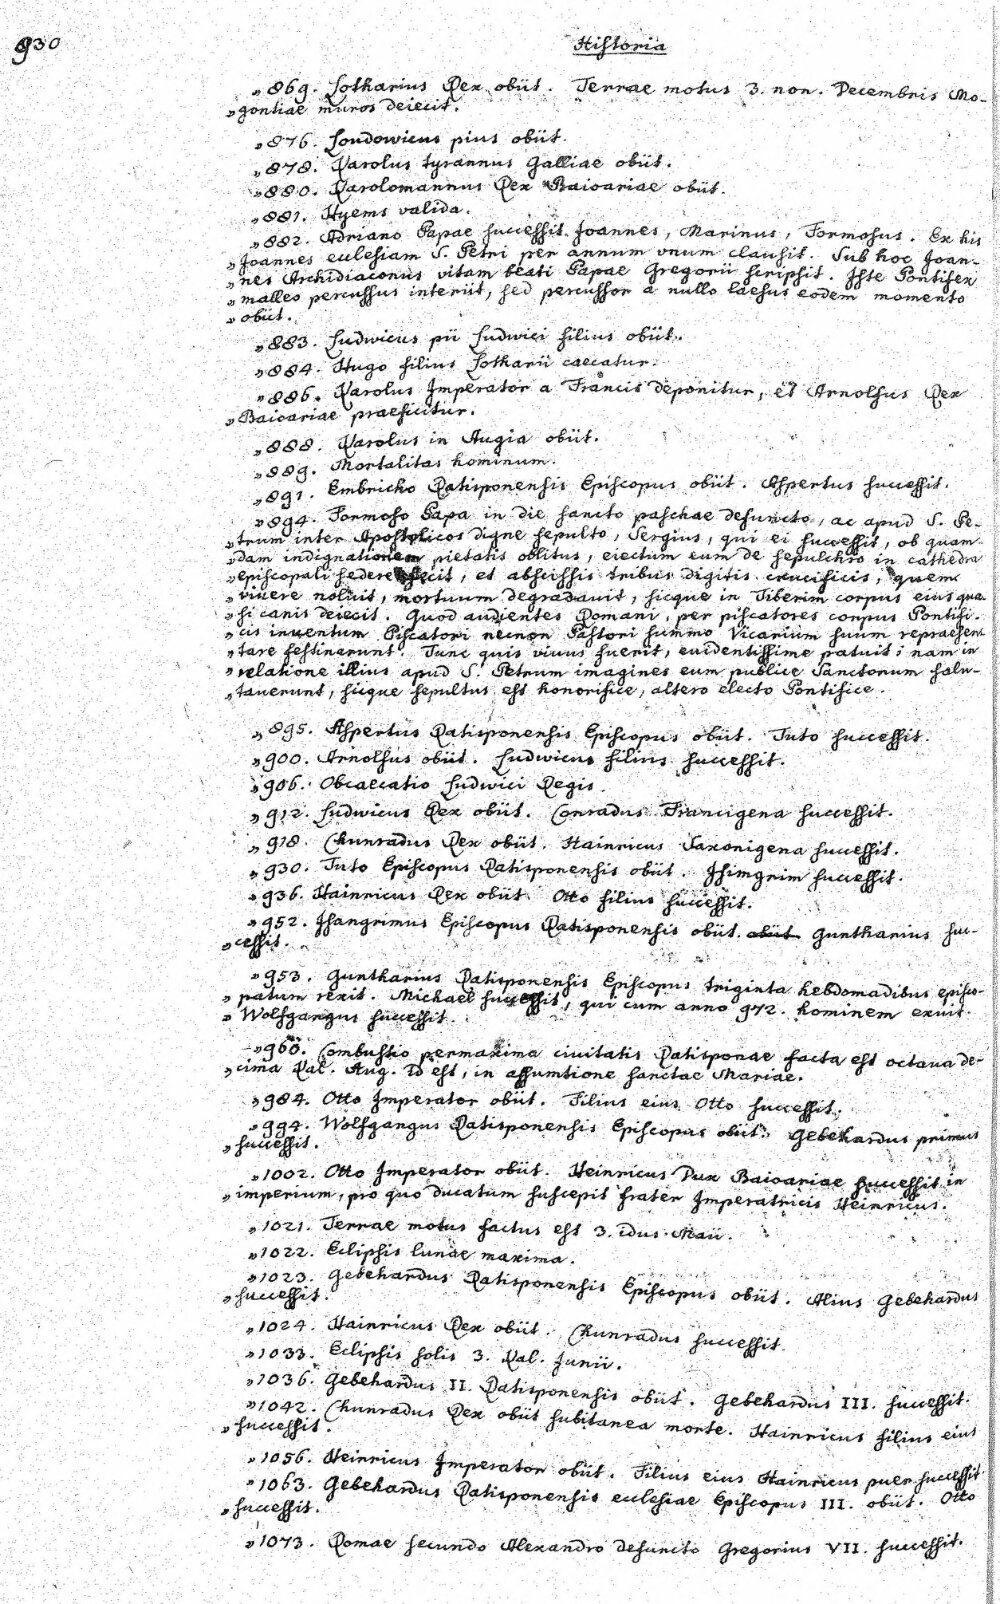 930
Historia
„869. Lotharius Rex obiit. Terrae motus 3. non. Decembris Mo-
„gontiae muros deiecit.
„876. Loudowicus pius obiit.
„878. Karolus tyrannus Galliae obiit.
„880. Karolomannus Rex Baioariae obiit.
„881. Hyems valida.
„882. Adriano Papae successit Joannes, Marinus, Formosus. Ex his
„Joannes ecclesiam S. Petri per annum vnum clausit. Sub hoc Joan-
„nes Archidiaconus vitam beati Papae Gregorii scripsit. Iste Pontifex
„malleo percussus interiit, sed percussor a nullo laesus eodem momento
„obiit.
„883. Ludwicus pii Ludwici filius obiit.
„884. Hugo filius Lotharii caecatur.
„886. Karolus Imperator a Francis deponitur, et Arnolfus Rex
„Baioariae praeficitur.
„888. Karolus in Augia obiit.
„889. Mortalitas hominum.
„891. Embricho Ratisponensis Episcopus obiit. Aspertus successit.
„894. Formoso Papa in die sancto paschae defuncto, ac apud S. Pe-
„trum inter Apostolicos digne sepulto, Sergius, qui ei successit, ob quam-
„dam indignationem pietatis oblitus, eiectum eum de sepulchro in cathedra
„Episcopali sedere fecit, et abscissis tribus digitis crucificis, quem
„viuere noluit, mortuum degradauit, sicque in Tiberim corpus eius qua-
„si canis deiecit. Quod audientes Romani, per piscatores corpus Pontifi-
„cis inuentum Piscatori necnon Pastori summo Vicarium suum repraesen-
„tare festinarunt. Tunc quis viuus fuerit, euidentissime patuit: nam in
„relatione illius apud S. Petrum imagines eum publice Sanctorum salu-
„tauerunt, sicque sepultus est honorifice, altero electo Pontifice.
„895. Aspertus Ratisponensis Episcopus obiit. Tuto successit.
„900. Arnolfus obiit. Ludwicus filius successit.
„906. Obcaecatio Ludwici Regis.
„912. Ludwicus Rex obiit. Conradus Francigena successit.
„918. Chunradus Rex obiit. Hainricus Saxonigena successit.
„930. Tuto Episcopus Ratisponensis obiit. Isimgrim successit.
„936. Hainricus Rex obiit. Otto filius successit.
„952. Isangrimus Episcopus Ratisponensis obiit. obiit Guntharius suc-
„cessit.
„953. Guntharius Ratisponensis Episcopus triginta hebdomadibus episco-
„patum rexit. Michael successit, qui cum anno 972. hominem exuit.
„Wolfgangus successit.
„960. Combustio permaxima ciuitatis Ratisponae facta est octaua de-
„cima Kal. Aug. id est, in assumtione sanctae Mariae.
„984. Otto Imperator obiit. Filius eius Otto successit.
„994. Wolfgangus Ratisponensis Episcopus obiit. Gebehardus primus
„successit.
„1002. Otto Imperator obiit. Heinricus Dux Baioariae successit in
„imperium, pro quo ducatum suscepit frater Imperatricis Heinricus.
„1021. Terrae motus factus est 3. idus Maii.
„1022. Eclipsis lunae maxima.
„1023. Gebehardus Ratisponensis Episcopus obiit. Alius Gebehardus
„successit.
„1024. Hainricus Rex obiit. Chunradus successit.
„1033. Eclipsis solis 3. Kal. Junii.
„1036. Gebehardus II. Ratisponensis obiit. Gebehardus III. successit.
„1042. Chunradus Rex obiit subitanea morte. Hainricus filius eius
„successit.
„1056. Heinricus Imperator obiit. Filius eius Hainricus puer successit.
„1063. Gebehardus Ratisponensis ecclesiae Episcopus III. obiit. Otto
„successit.
„1073. Romae secundo Alexandro defuncto Gregorius VII. successit.